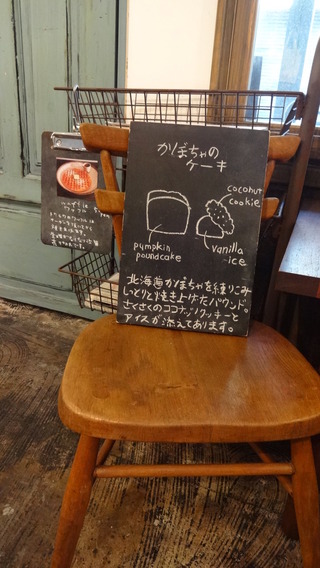 かぼちゃの
ケーキ
coconut
cookie
pumpkin
poundcake
vanilla
ice
北海道かぼちゃを練りこみ
しっとりと焼き上げたパウンド。
さくさくのココナッツクッキーと
アイスが添えてあります。